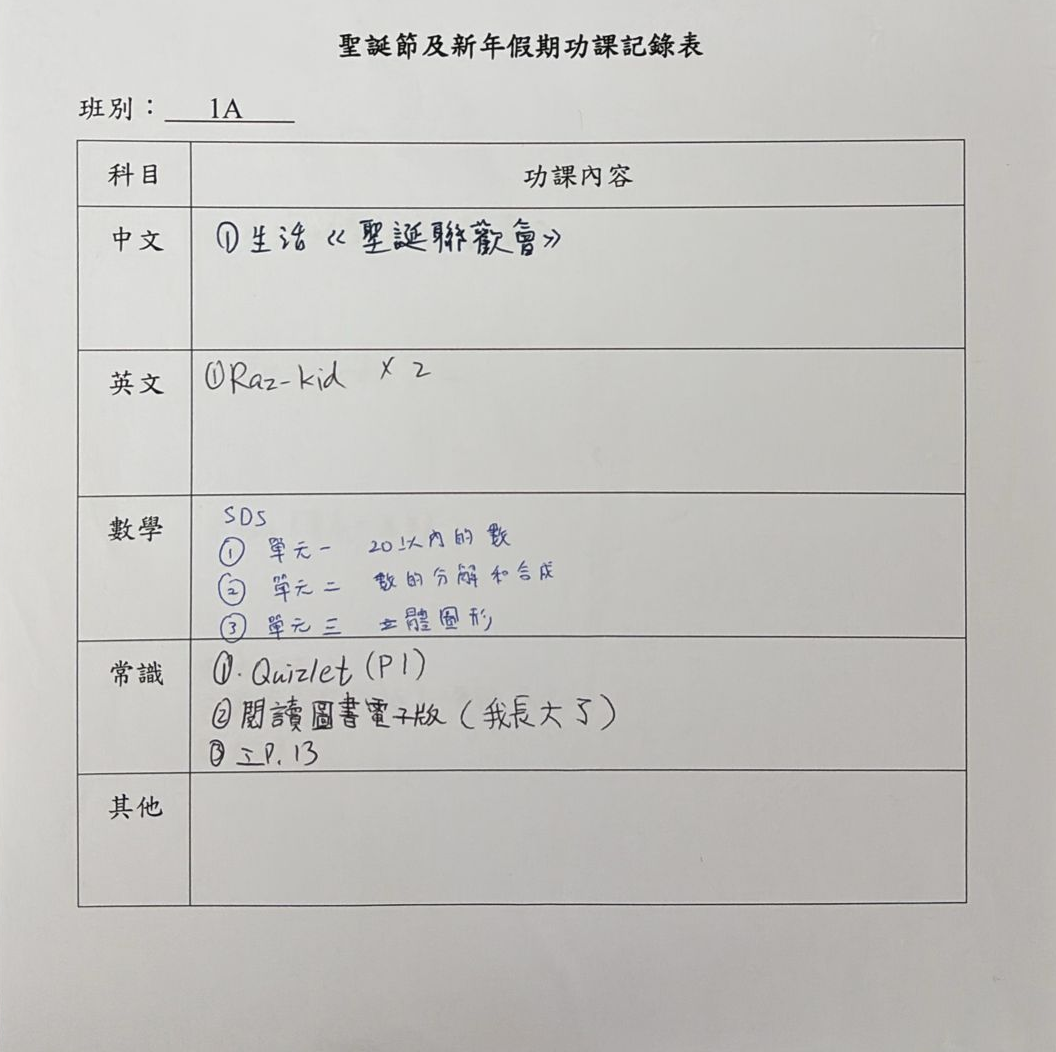 聖誕節及新年假期功課記錄表
班別： 1A
科目 功課內容
中文 ①生活《聖誕聯歡會》
英文 ①Raz-kid × 2
數學 SDS
① 單元一 20以內的數
② 單元二 數的分解和合成
③ 單元三 立體圖形
常識 ①. Quizlet (P1)
②閱讀圖書電子版（我長大了）
③ 工P. 13
其他